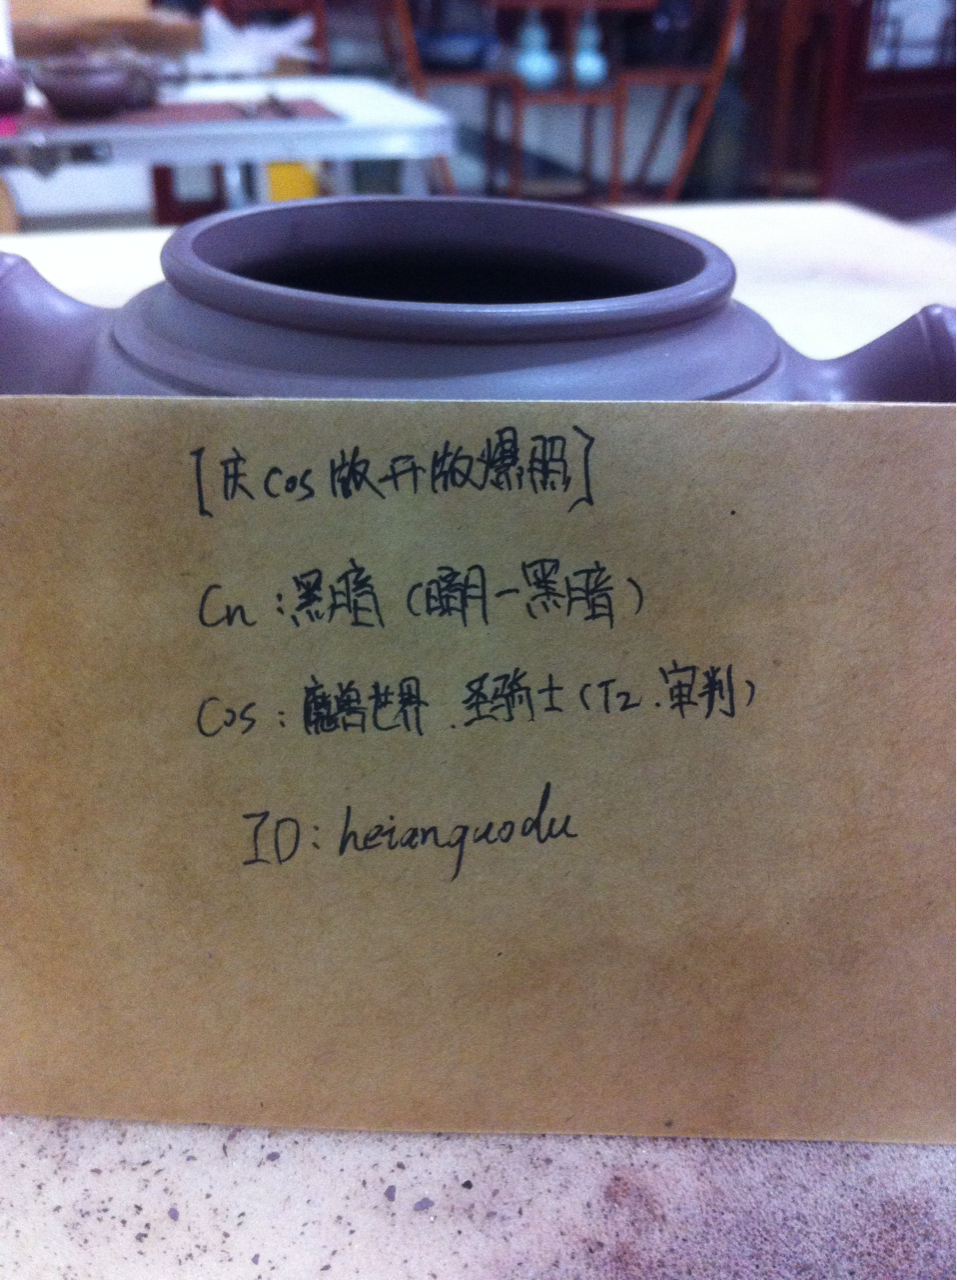 [庆cos版开版爆照]
Cn:黑暗(暗月-黑暗)
Cos:魔兽世界.圣骑士(T2.审判)
ID:heianguodu